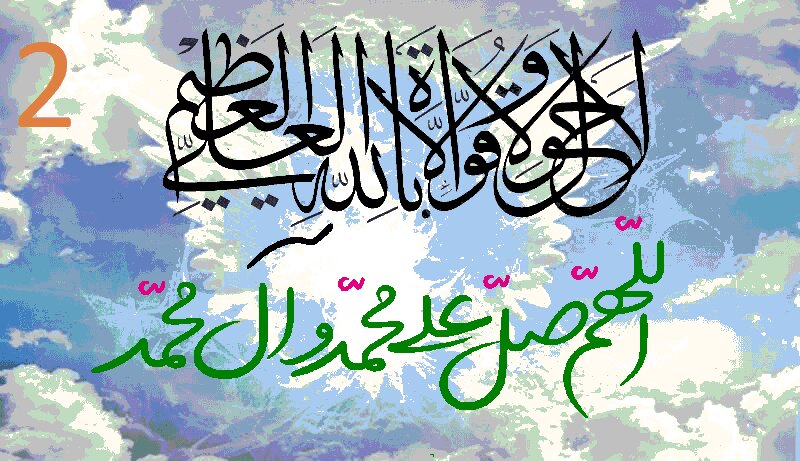 2
لا حول ولا قوة إلا بالله العلي العظيم
اللّهمّ صلّ علی محمّد وآل محمّد